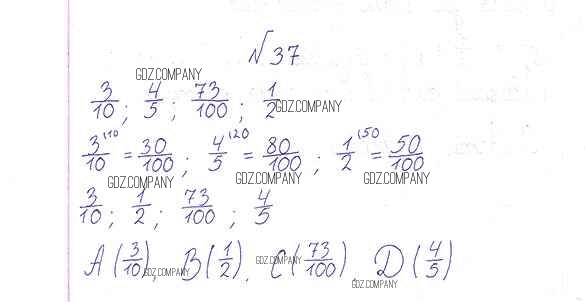 № 37
GDZ.COMPANY
3/10 ; 4/5 ; 73/100 ; 1/2
GDZ.COMPANY
3/10 ^(10 = 30/100 ; 4/5 ^(20 = 80/100 ; 1/2 ^(50 = 50/100
GDZ.COMPANY GDZ.COMPANY GDZ.COMPANY
3/10 ; 1/2 ; 73/100 ; 4/5
A(3/10), B(1/2), C(73/100), D(4/5)
GDZ.COMPANY GDZ.COMPANY